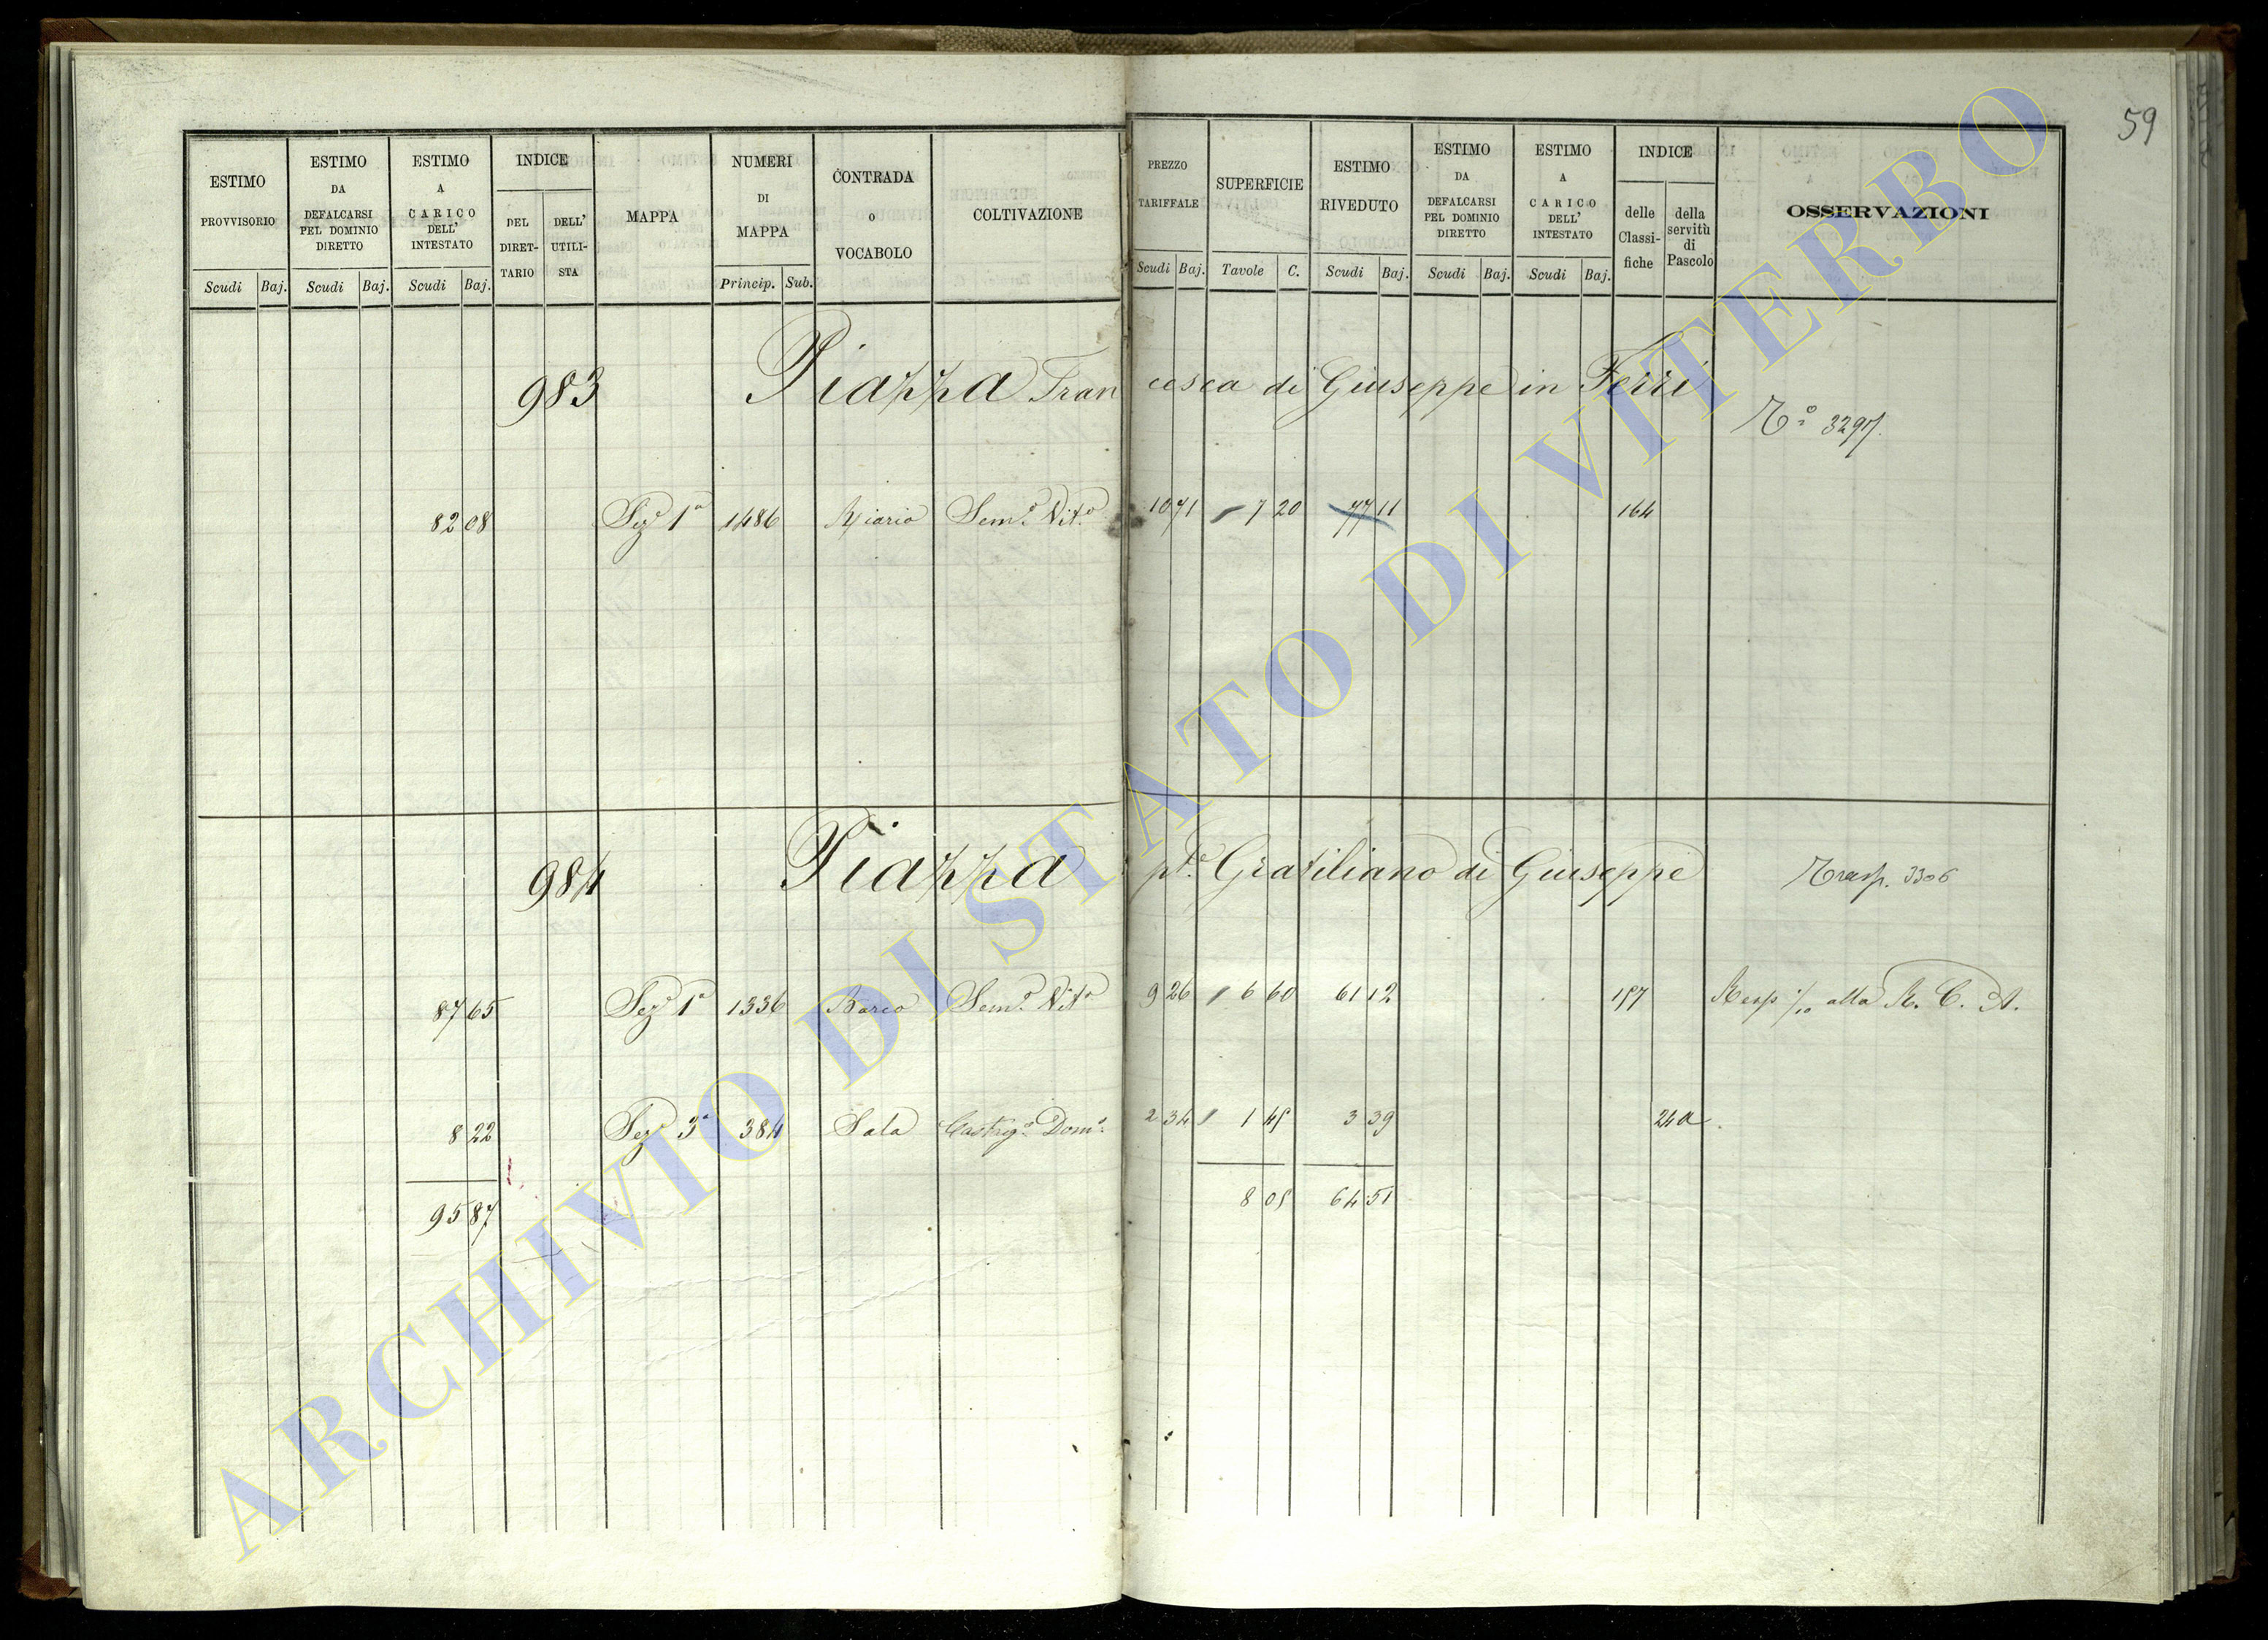 59
ESTIMO PROVVISORIO Scudi Baj.
ESTIMO DA DEFALCARSI PEL DOMINIO DIRETTO Scudi Baj.
ESTIMO A CARICO DELL' INTESTATO Scudi Baj.
INDICE DEL DIRET-TARIO DELL' UTILI-STA
MAPPA
NUMERI DI MAPPA Princip. Sub.
CONTRADA O VOCABOLO
COLTIVAZIONE
PREZZO TARIFFALE Scudi Baj.
SUPERFICIE Tavole C.
ESTIMO RIVEDUTO Scudi Baj.
ESTIMO DA DEFALCARSI PEL DOMINIO DIRETTO Scudi Baj.
ESTIMO A CARICO DELL' INTESTATO Scudi Baj.
INDICE delle Classi-fiche della servitù di Pascolo
OSSERVAZIONI
983 Piazza Francesca di Giuseppe in Ferri
Tº 3297.
82 08 Sezº 1ª 1486 Riario Semº Vitº 10 71 7 20 77 11 164
984 Piazza pte Gratiliano di Giuseppe Trasp. 3306
87 65 Sezº 1ª 1336 Barco Semº Vitº 9 26 6 60 61 12 157 Resp 1/10 alla R. C. A.
8 22 Sezº 3ª 384 Sala Castagº Domº 2 34 1 45 3 39 24a.
95 87 8 05 64 51
ARCHIVIO DI STATO DI VITERBO